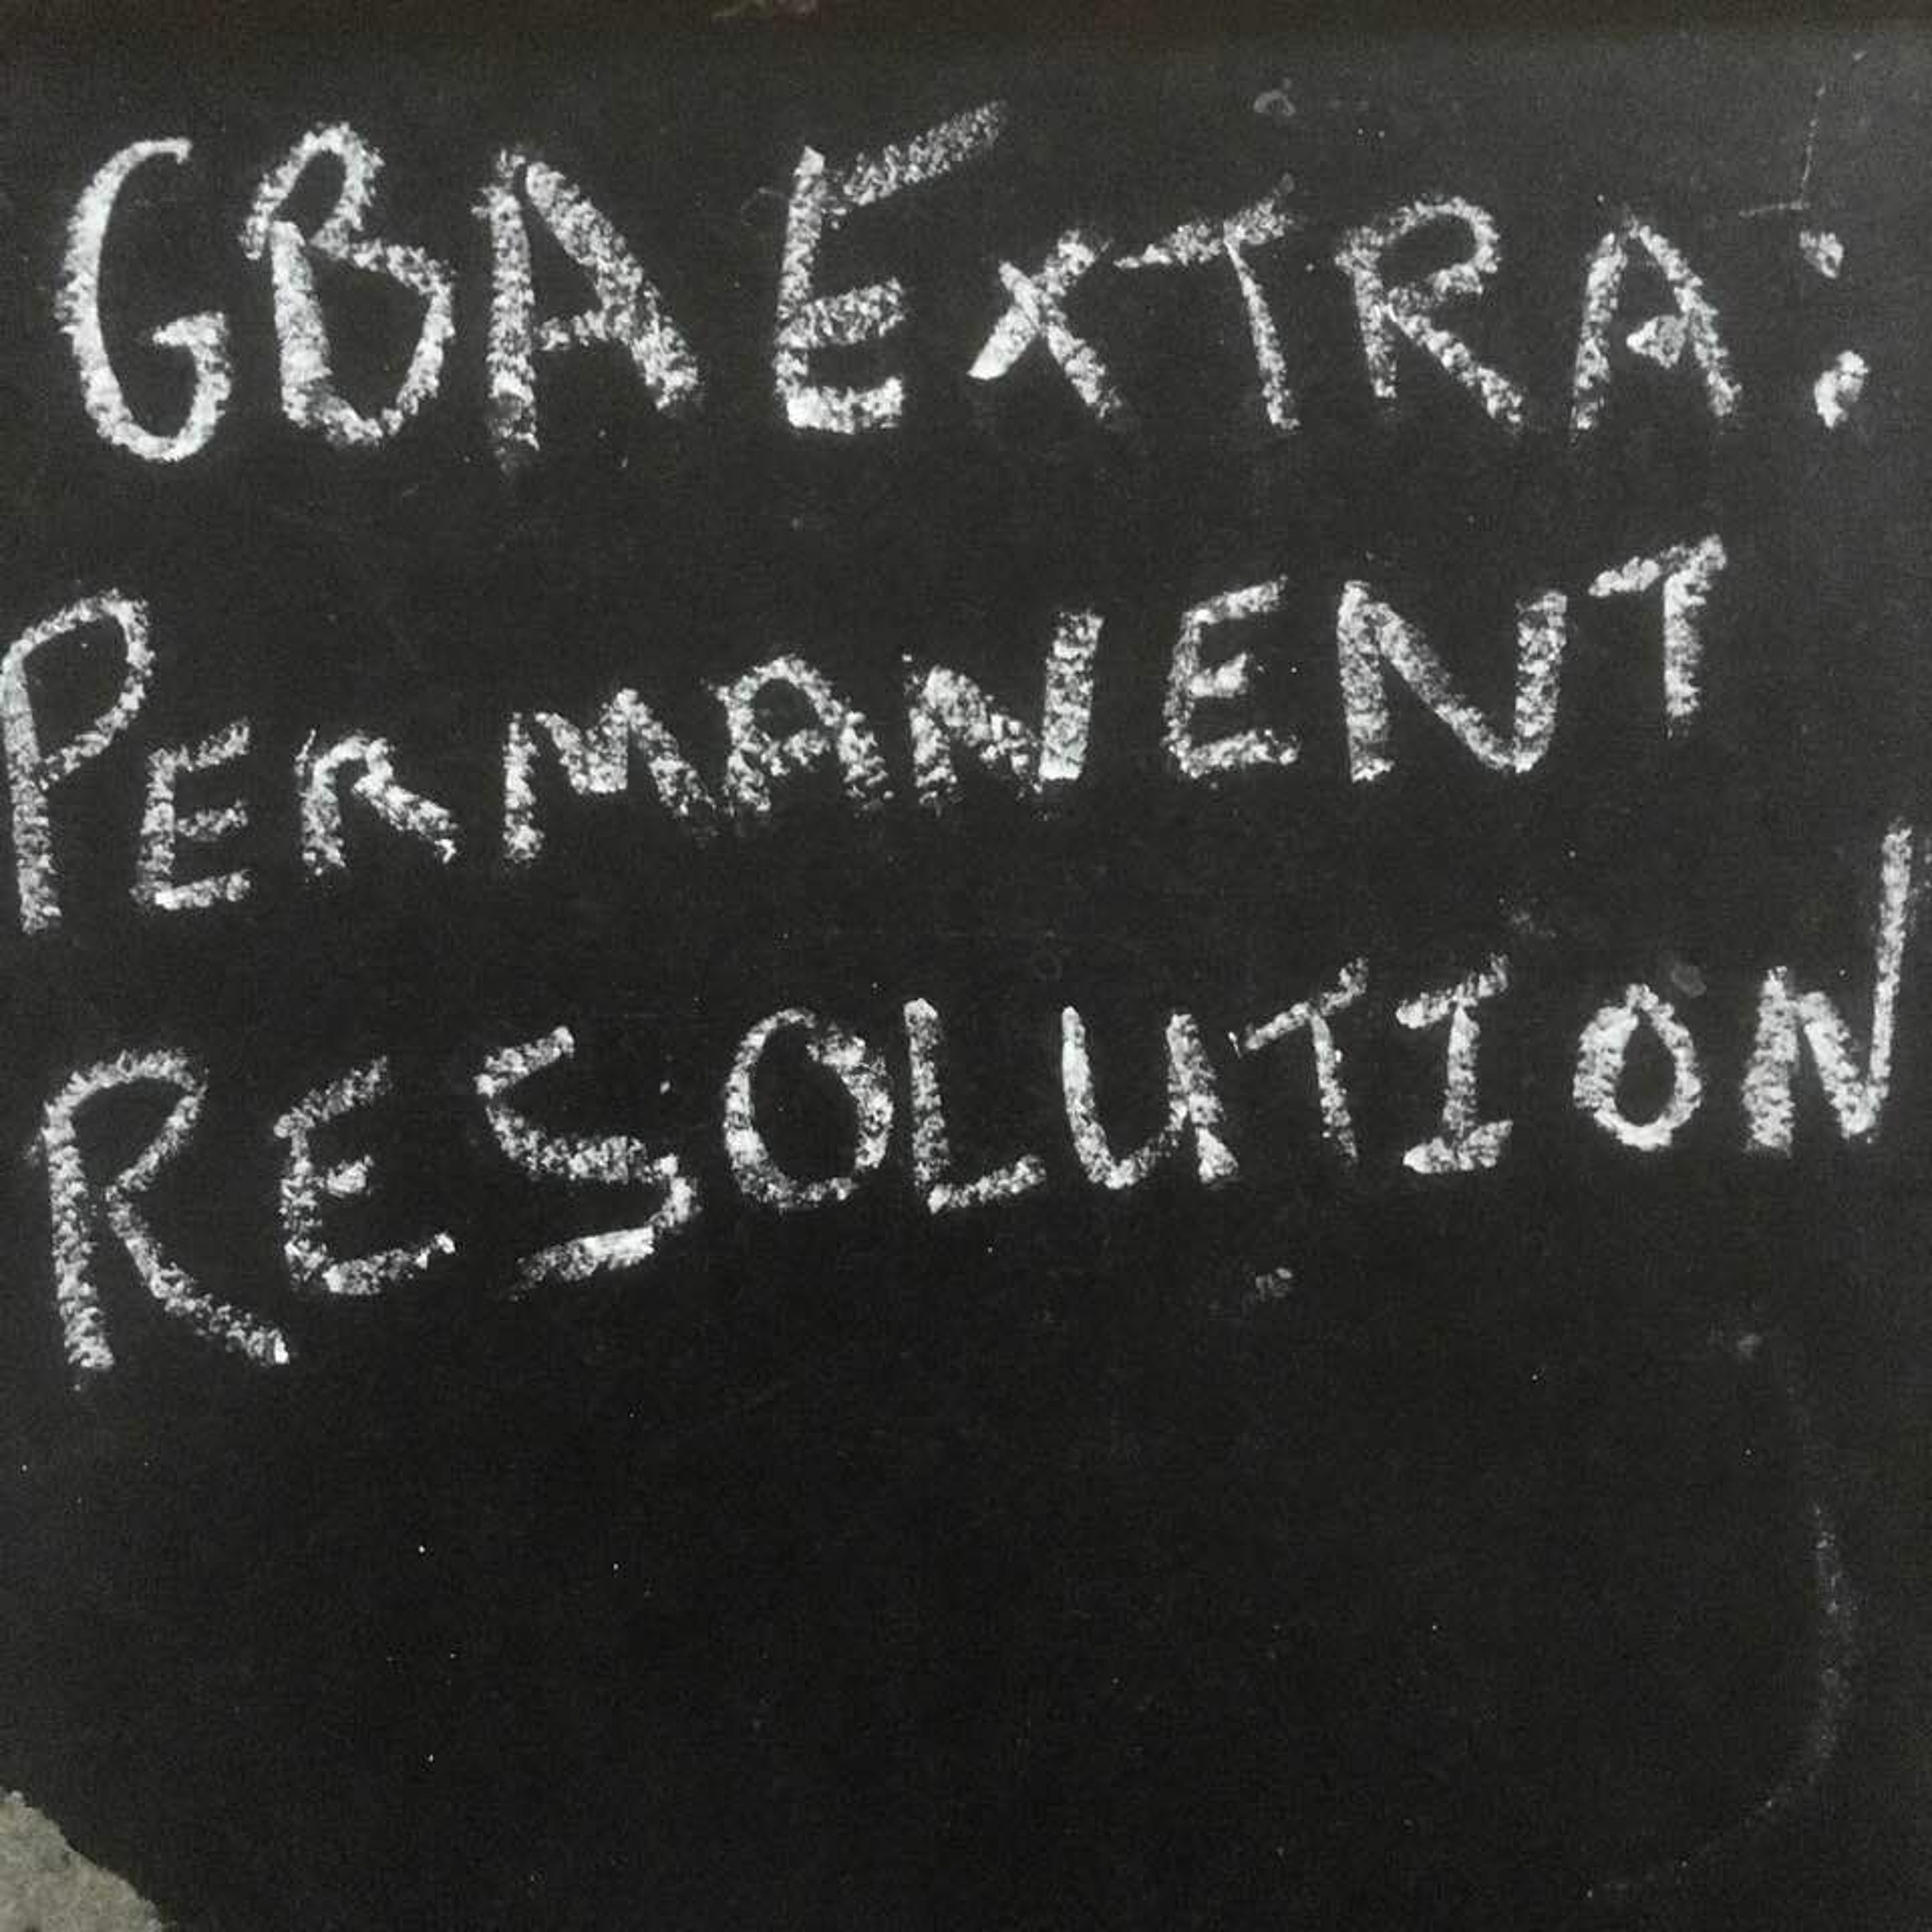 GBA EXTRA:
PERMANENT
RESOLUTION